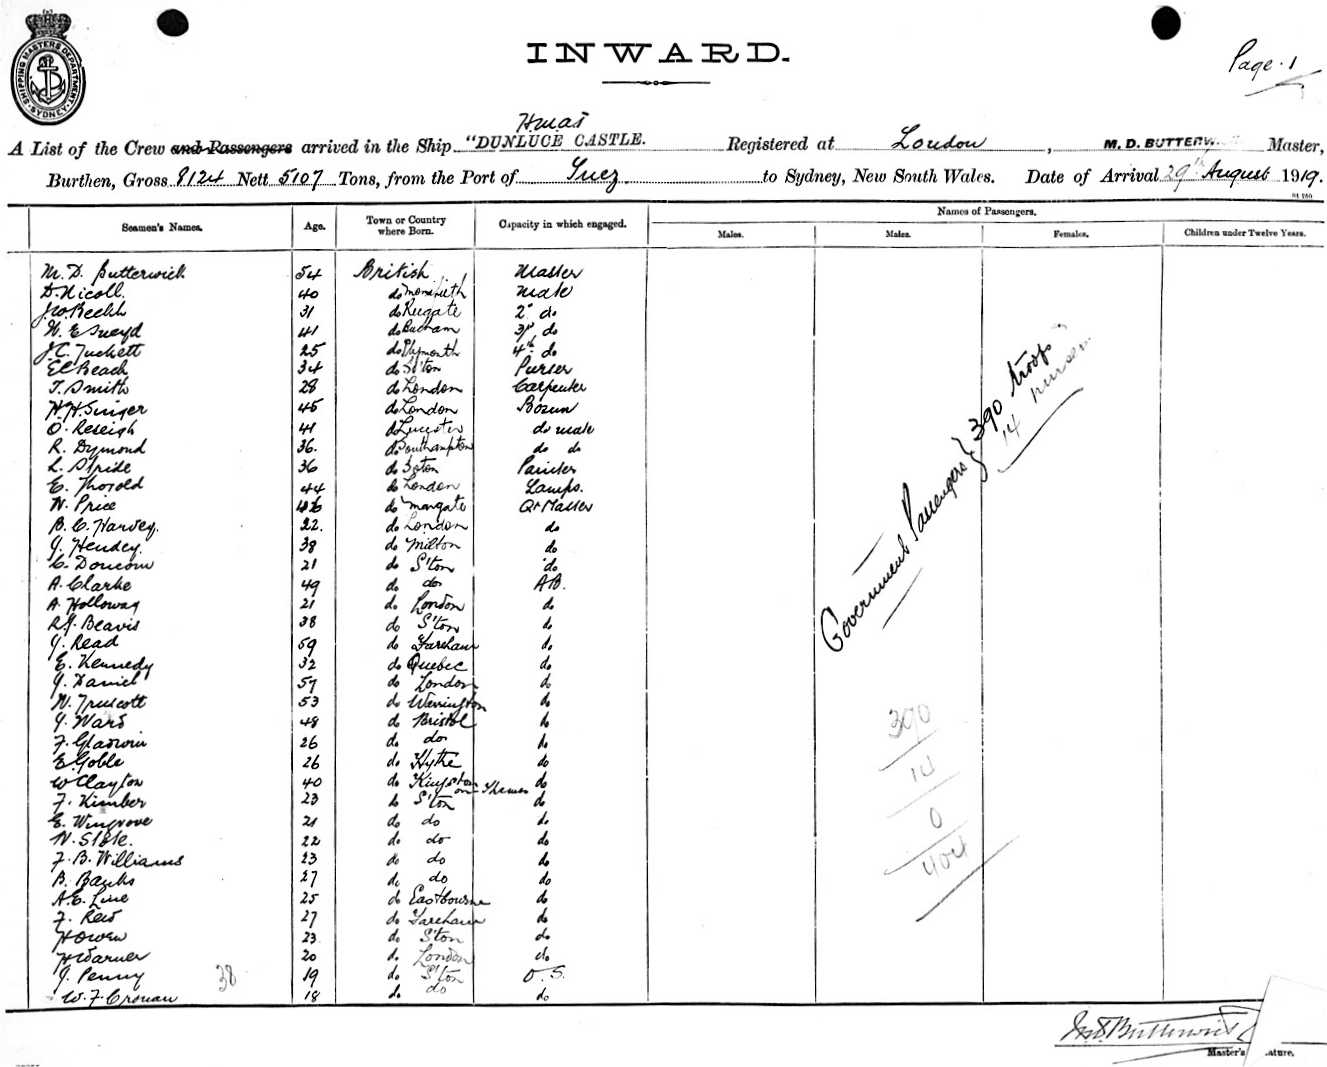 SHIPPING MASTERS DEPARTMENT
SYDNEY
INWARD.
Page. 1
H.M.A.T
A List of the Crew and Passengers arrived in the Ship "DUNLUCE CASTLE. Registered at London, M. D. BUTTERW Master,
Burthen, Gross 8124 Nett 5107 Tons, from the Port of Suez to Sydney, New South Wales. Date of Arrival 29th August 1919.
Names of Passengers.
Seamen's Names. Age. Town or Country where Born. Capacity in which engaged. Males. Males. Females. Children under Twelve Years.
M. D. Butterwick 54 British Master
D. Nicoll. 40 do Mate
31 do Reigate 2d do
41 do 3rd do
J. C. Tuckett 25 do Plymouth 4th do
E C Beach 34 do So'ton Purser
T. Smith 28 do London Carpenter
H. H. Singer 45 do London Bosun
O. Releigh 41 do Leicester do mate
R. Dymond 36. do Southampton do do
L. Stride 36 do Soton Painter
E. Thorold 44 do London Lamps.
W. Price do Margate Qr Master
B. C. Harvey. 22. do London do
J. Hendey. 38 do Milton do
21 do S'ton do
A. Clarke 49 do do AB.
A. Holloway 21 do London do
R. J. Beavis 38 do S'ton do
J. Read 59 do Fareham do
E. Kennedy 32 do Quebec do
J. Daniel 57 do London do
W. Truscott 53 do Warrington do
J. Ward 48 do Bristol do
F. Gladwin 26 do do do
E. Goble 26 do Hythe do
W Clayton 40 do Kingston on Thames do
F. Kimber 23 do S'ton do
E. Wingrove 21 do do do
22 do do do
F. B. Williams 23 do do do
B. Banks 27 do do do
A. E. Line 25 do Eastbourne do
F. Rew 27 do Fareham do
H Owen 23 do S'ton do
H Warner 20 do London do
J. Penny 38 19 do S'ton O. S.
W. F. Cronan 18 do do do
Government Passengers } 390 troops
14 nurses
390
14
0
404
M. D. Butterwick
Master's ature.